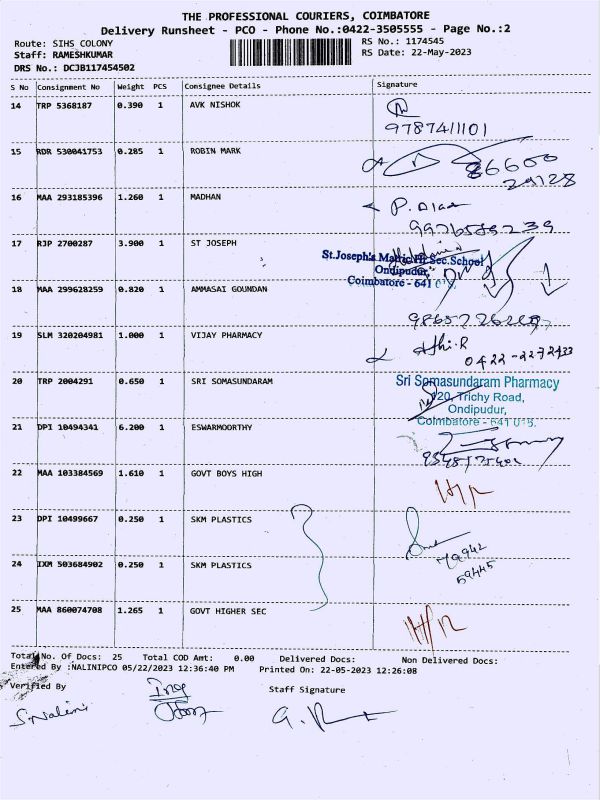 THE PROFESSIONAL COURIERS, COIMBATORE
Delivery Runsheet - PCO - Phone No.:0422-3505555 - Page No.:2
Route: SIHS COLONY
RS No.: 1174545
Staff: RAMESHKUMAR
RS Date: 22-May-2023
DRS No.: DCJB117454502
S No Consignment No Weight PCS Consignee Details Signature
14 TRP 5368187 0.390 1 AVK NISHOK
9787411101
15 RDR 530041753 0.285 1 ROBIN MARK
86600
29128
16 MAA 293185396 1.260 1 MADHAN
17 RJP 2700287 3.900 1 ST JOSEPH
St.Joseph's Matric.Hr.Sec.School
Ondipudur,
Coimbatore - 641
18 MAA 299628259 0.820 1 AMMASAI GOUNDAN
19 SLM 320204981 1.000 1 VIJAY PHARMACY
0422-2272433
20 TRP 2004291 0.650 1 SRI SOMASUNDARAM
Sri Somasundaram Pharmacy
Trichy Road,
Ondipudur,
Coimbatore - 641 015.
21 DPI 10494341 6.200 1 ESWARMOORTHY
22 MAA 103384569 1.610 1 GOVT BOYS HIGH
23 DPI 10499667 0.250 1 SKM PLASTICS
79942
59445
24 IXM 503684902 0.250 1 SKM PLASTICS
25 MAA 860074708 1.265 1 GOVT HIGHER SEC
Total No. Of Docs: 25 Total COD Amt: 0.00 Delivered Docs: Non Delivered Docs:
Entered By :NALINIPCO 05/22/2023 12:36:40 PM Printed On: 22-05-2023 12:26:08
Verified By
Staff Signature
S.Nalini